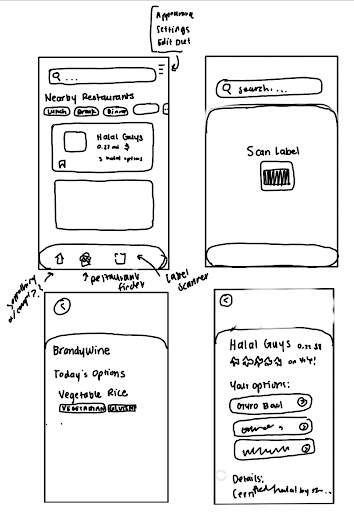 Appearance
Settings
Edit Diet
Q ...
Nearby Restaurants
Lunch Break Dinner
Halal Guys
0.22 mi $
3 halal options
Something
w/
restaurant
finder
Label
scanner
search...
Scan Label
Brandywine
Today's Options
Vegetable Rice
VEGETARIAN
Halal Guys 0.22 $$
on Yelp!
Your options:
Gyro Bowl
Details:
Certified halal by